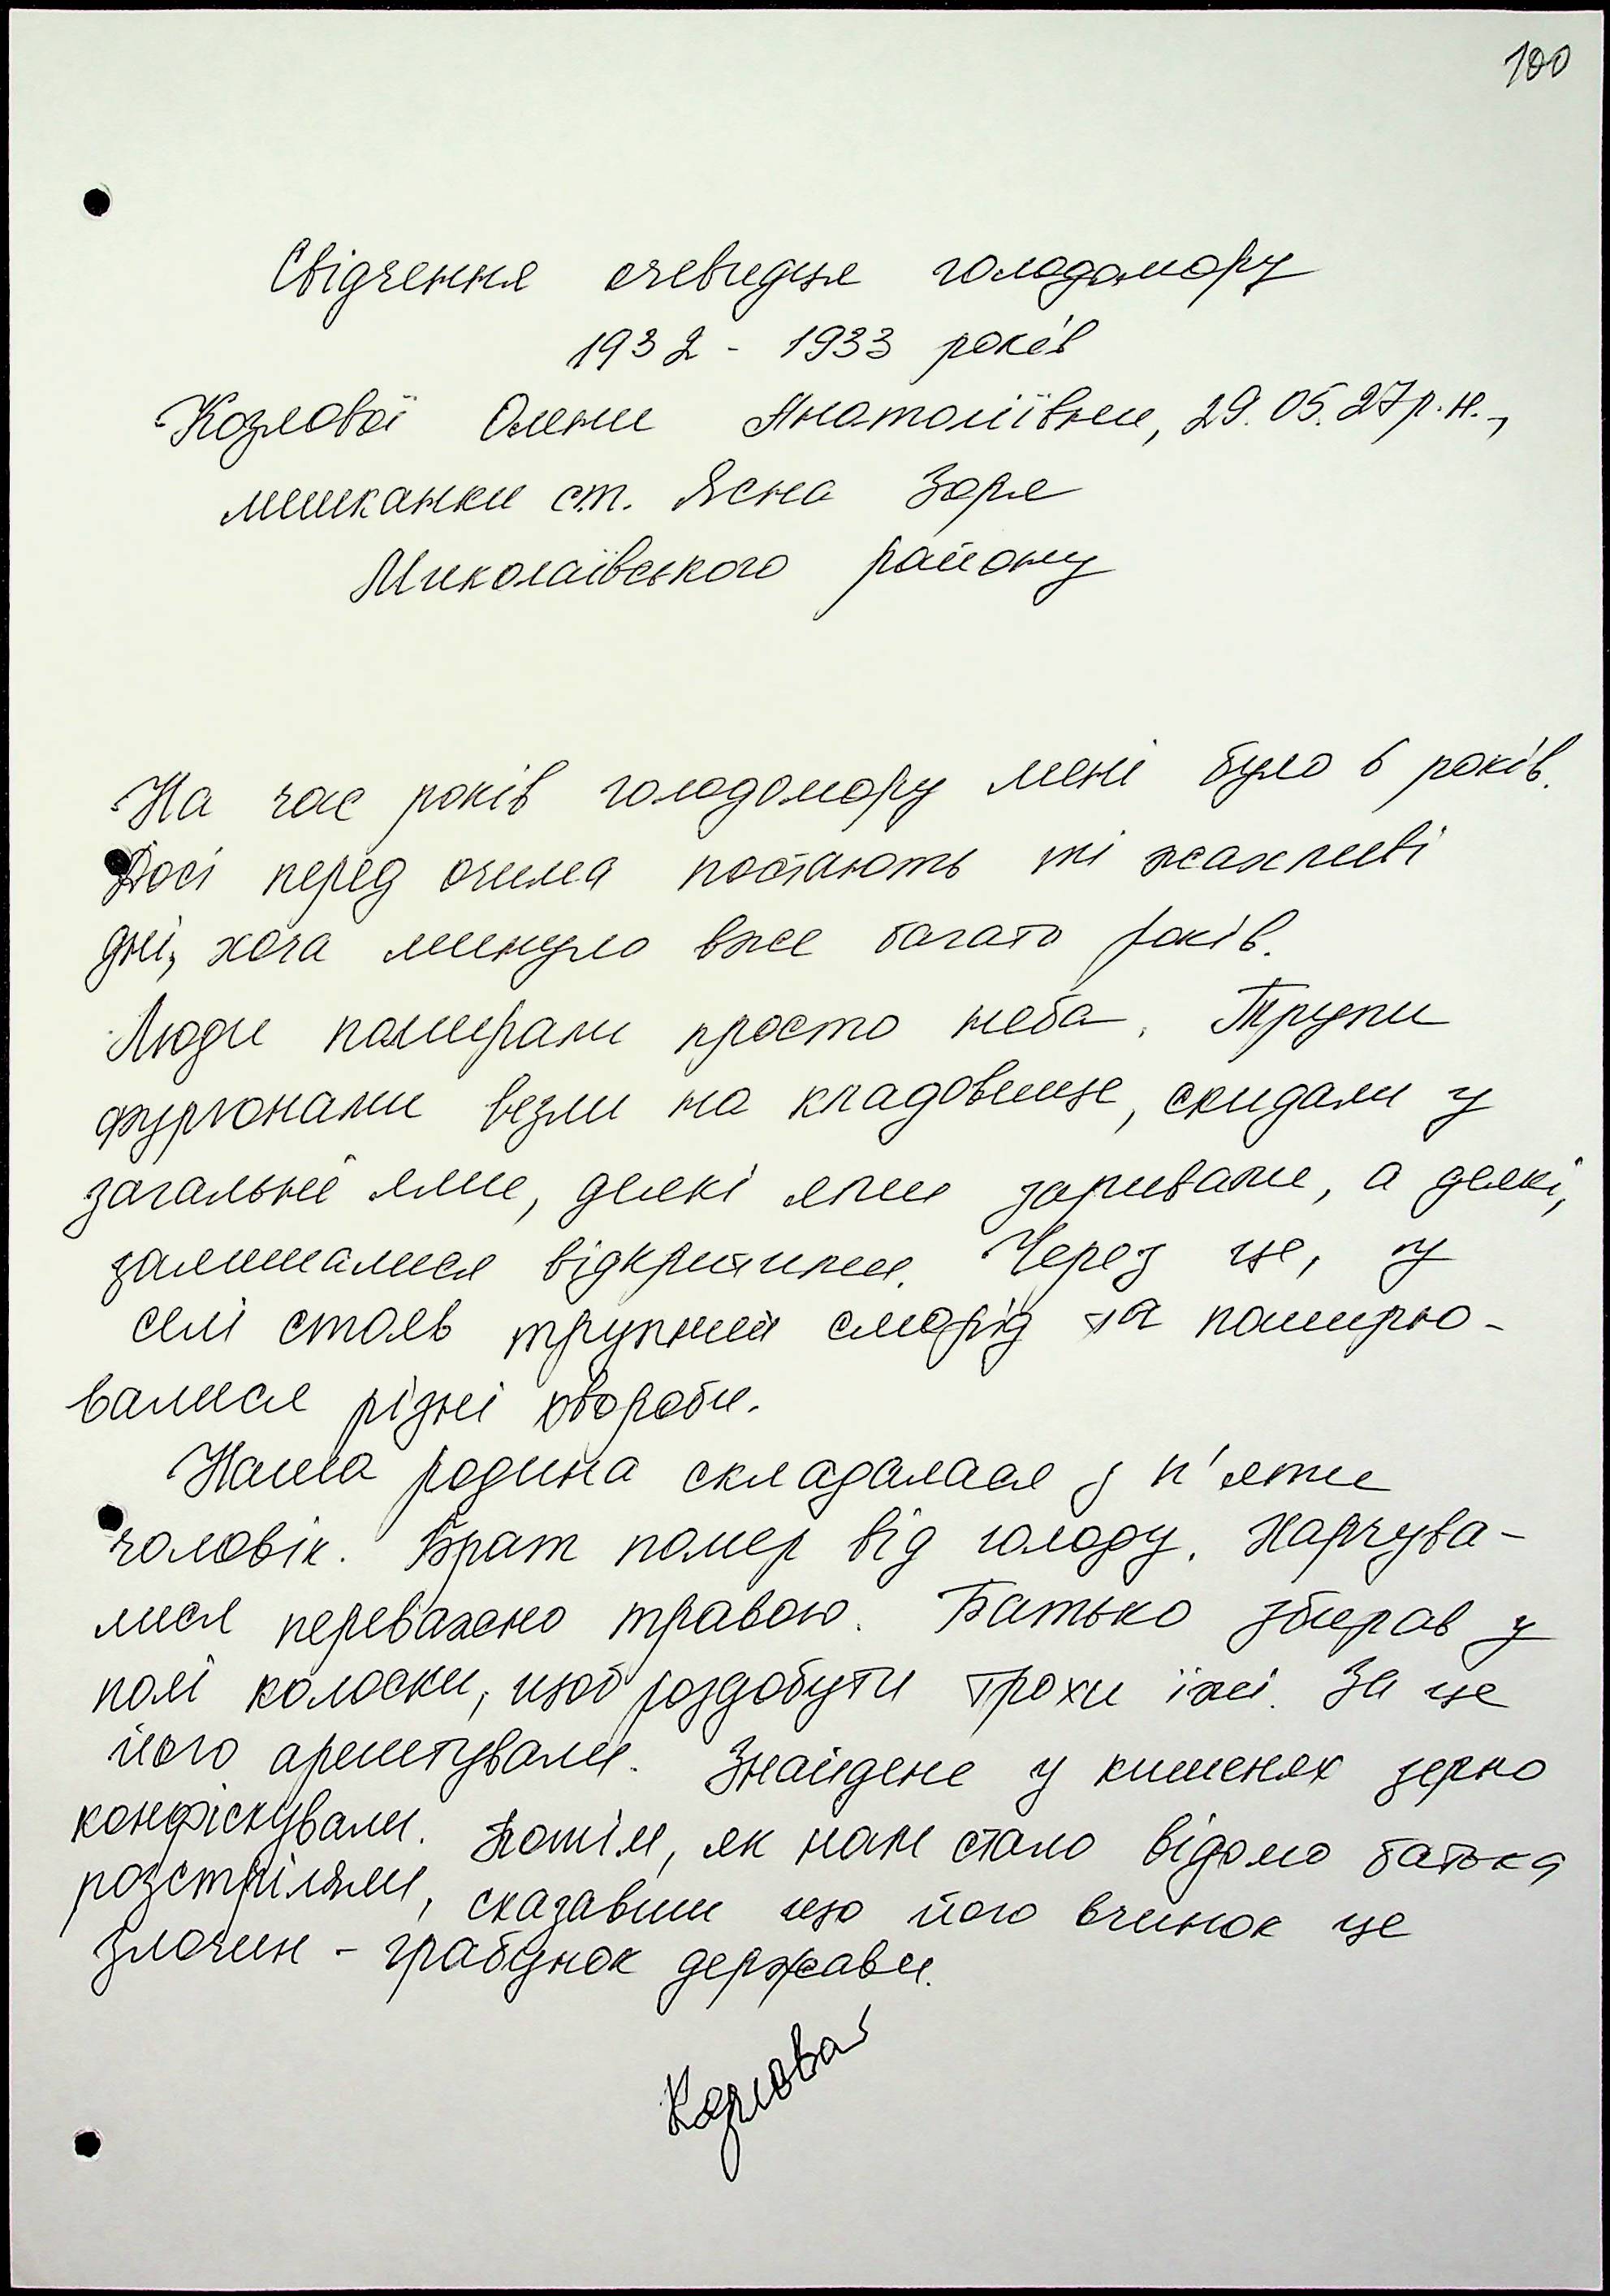 100
Свідчення очевидця голодомору
1932 - 1933 років
Козлової Олени Анатоліївни, 29.05.27р.н.,
мешканки ст. Ясна Зоря
Миколаївського району
На час років голодомору мені було 6 років.
Досі перед очима постають ті жахливі
дні, хоча минуло вже багато років.
Люди помирали просто неба. Трупи
фургонами везли на кладовище, скидали у
загальні ями, деякі ями заривали, а деякі,
залишалися відкритими. Через це, у
селі стояв трупний сморід та поширю-
валися різні хвороби.
Наша родина складалася з п'яти
чоловік. Брат помер від голоду. Харчува-
лися переважно травою. Батько збирав у
полі колоски, щоб роздобути трохи їжі. За це
його арештували. Знайдене у кишенях зерно
конфіскували. Потім, як нам стало відомо батька
розстріляли, сказавши що його вчинок це
злочин - грабунок держави.
Козлова